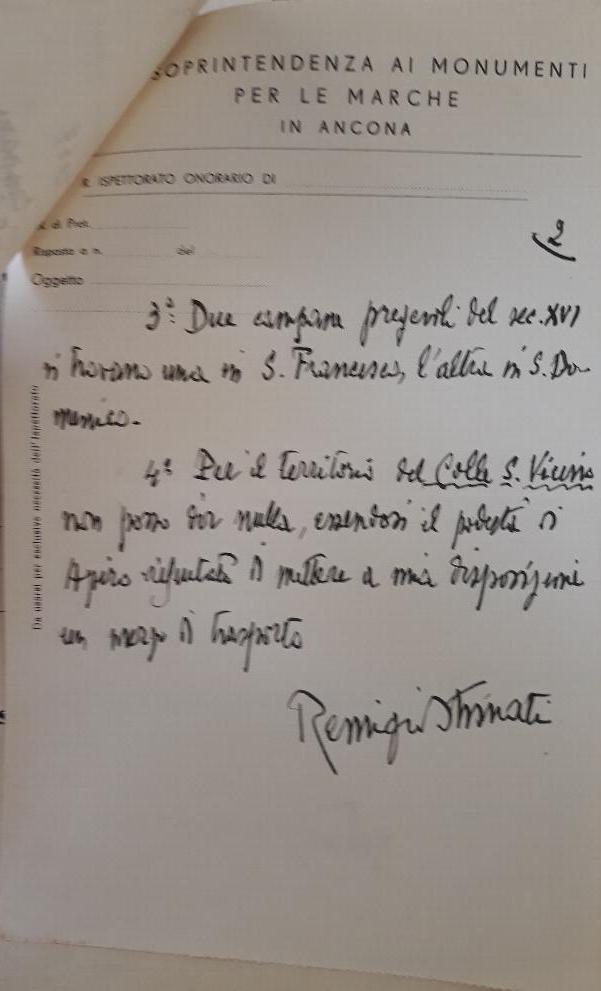 SOPRINTENDENZA AI MONUMENTI
PER LE MARCHE
IN ANCONA
R. ISPETTORATO ONORARIO DI
N. di Prot.
Risposta a n. del
Oggetto
2
3°: Due campane pregevoli del sec. XVI
si trovano una in S. Francesco, l'altra in S. Do-
menico.-
4° Per il territorio del Colle S. Vicino
non posso dir nulla, essendosi il podestà di
Apiro rifiutato di mettere a mia disposizione
un mezzo di trasporto
Remigio Strinati
Da usarsi per esclusive necessità dell'Ispettorato